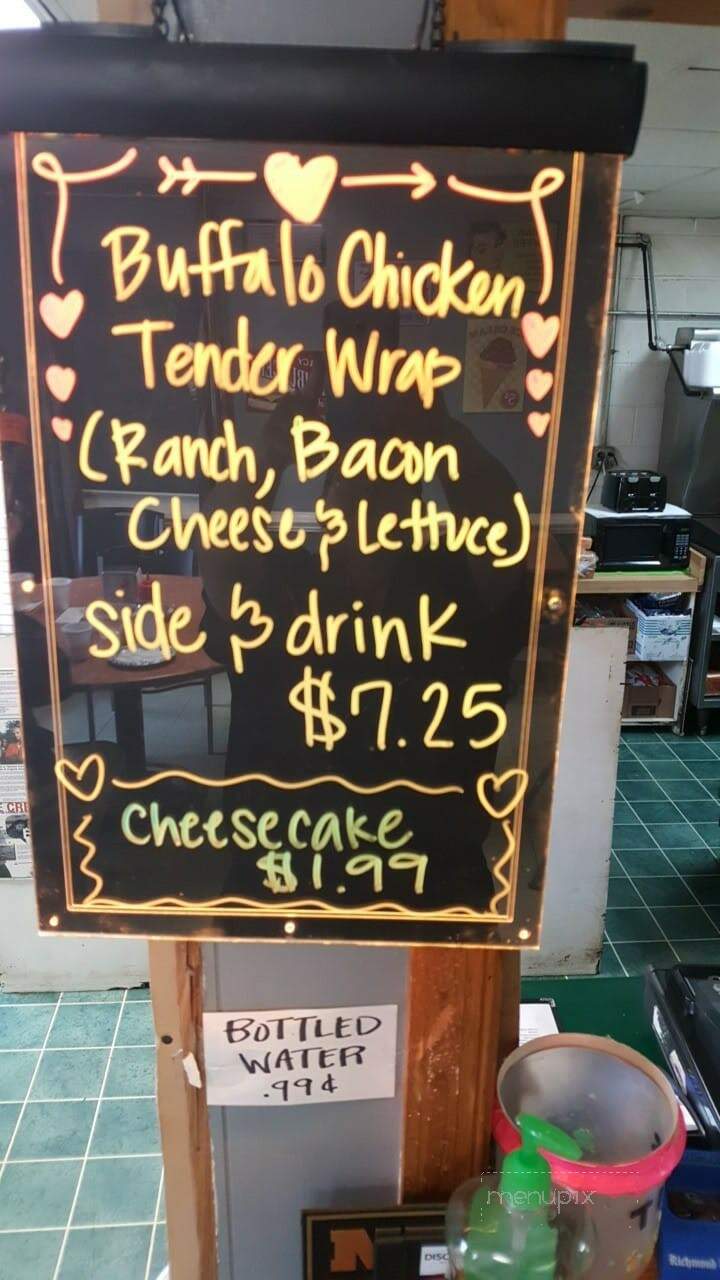 Buffalo Chicken
Tender Wrap
(Ranch, Bacon
Cheese & Lettuce)
side & drink
$7.25
Cheesecake
$1.99
BOTTLED
WATER
.99¢
menupix
DISC
Richmond